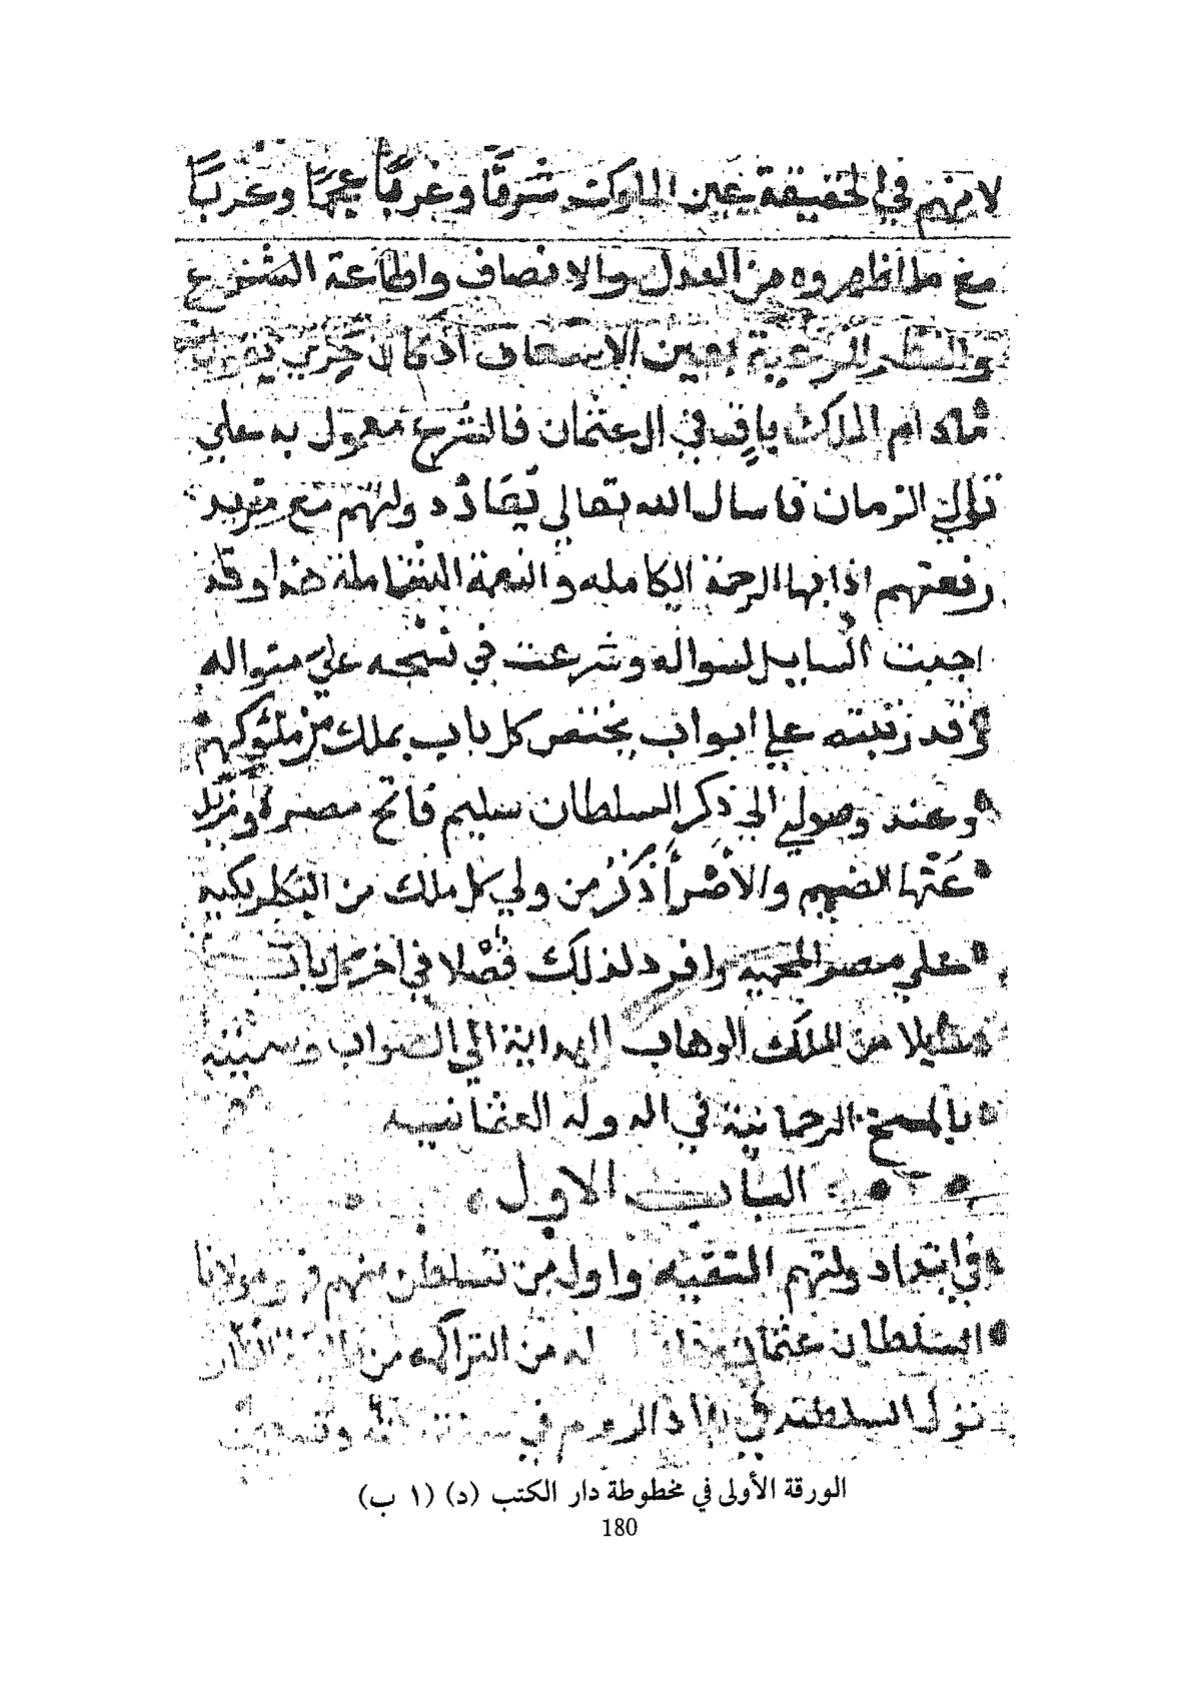 لانهم في الحقيقة عين الملوك شرقًا وغربًا عجمًا وعربًا
مع ما اظهروه من العدل والانصاف واطاعة الشرع
والنظر للرعية بعين الاسعاف اذ كان
مادام الملك باقٍ في ال عثمان فالشرع معمول به علي
توالي الزمان فاسال الله تعالي دولتهم مع مزيد
رفعتهم الرحمة الكامله والنعمة الشاملة هذا وقد
اجبت السايل لسواله وشرعت في نسجه علي منواله
وقد رتبته علي ابواب يختص كل باب بملك من ملوكهم
وعند وصولي الي ذكر السلطان سليم فاتح مصر ومزيل
عَنْها الضيم والأصْر أذكُرُ من ولي كل ملك من البكلربكيه
علي مصر المحميه وافرد لذلك فصْلا في اخر كل باب
سايلا من الملك الوهاب الهداية الي الصواب وسميته
بالمنح الرحمانية في الدولة العثمانيه
الباب الاول
في ابتداء دولتهم واول من تسلطن منهم مولانا
السلطان عثمان له من التراكمه من
السلطنه في الروم في
الورقة الأولى في مخطوطة دار الكتب (د) (١ ب)
180